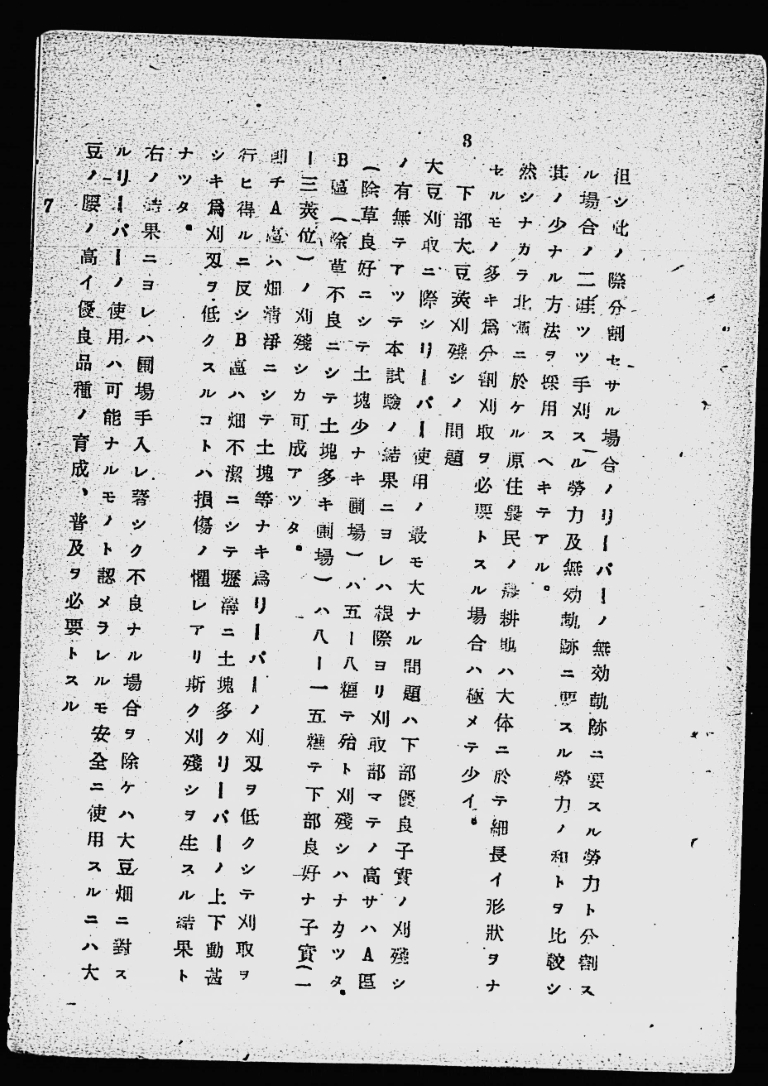 但シ此ノ際分割セサル場合ノリーパーノ無効軌跡ニ要スル勞力ト分割ス
ル場合ノ二畦ツツ手刈スル勞力及無効軌跡ニ要スル勞力ノ和トヲ比較シ
其ノ少ナル方法ヲ採用スヘキテアル。
然シナカラ北滿ニ於ケル原住農民ノ農耕地ハ大体ニ於テ細長イ形狀ヲナ
セルモノ多キ爲分割刈取ヲ必要トスル場合ハ極メテ少イ。
3
下部大豆莢刈殘シノ問題
大豆刈取ニ際シリーパー使用ノ最モ大ナル問題ハ下部優良子實ノ刈殘シ
ノ有無テアツテ本試驗ノ結果ニヨレハ根際ヨリ刈取部マテノ高サハA區
(除草良好ニシテ土塊少ナキ圃場)ハ五ー八糎テ殆ト刈殘シハナカツタ。
B區(除草不良ニシテ土塊多キ圃場)ハ八ー一五糎テ下部良好ナ子實(一
ー三莢位)ノ刈殘シカ可成アツタ。
卽チA區ハ畑淸淨ニシテ土塊等ナキ爲リーパーノ刈刄ヲ低クシテ刈取ヲ
行ヒ得ルニ反シB區ハ畑不潔ニシテ壟溝ニ土塊多クリーパーノ上下動甚
シキ爲刈刄ヲ低クスルコトハ損傷ノ懼レアリ斯ク刈殘シヲ生スル結果ト
ナツタ。
右ノ結果ニヨレハ圃場手入レ著シク不良ナル場合ヲ除ケハ大豆畑ニ對ス
ルリーパーノ使用ハ可能ナルモノト認メラレルモ安全ニ使用スルニハ大
豆ノ腰ノ高イ優良品種ノ育成、普及ヲ必要トスル
7